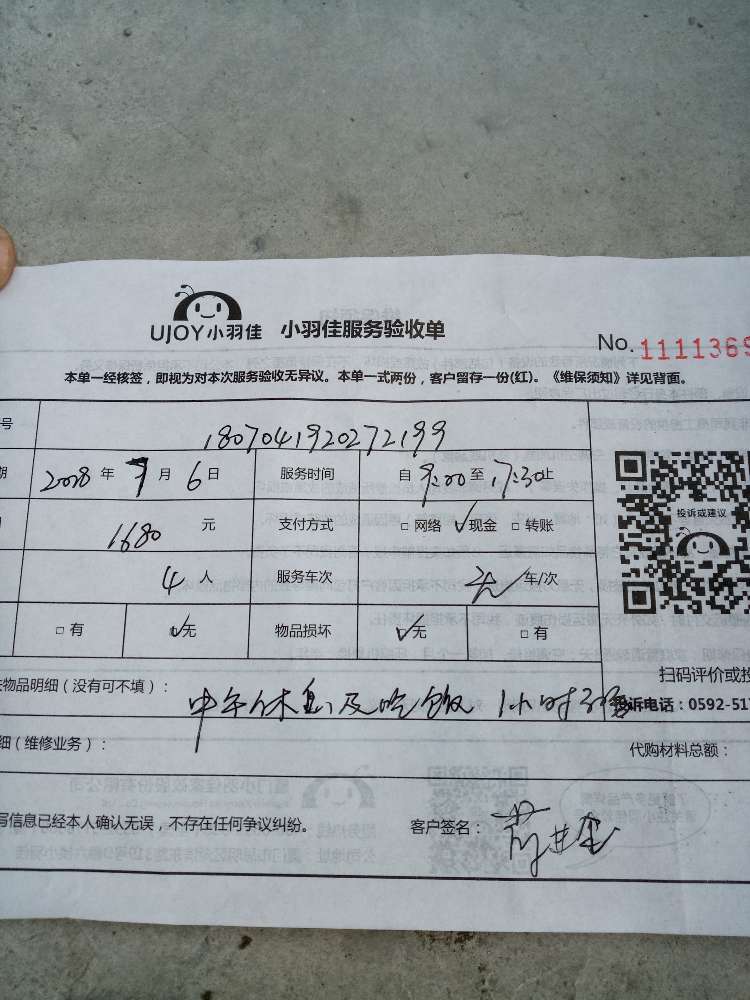 UJOY小羽佳 小羽佳服务验收单
No. 1111369
本单一经核签，即视为对本次服务验收无异议。本单一式两份，客户留存一份(红)。《维保须知》详见背面。
号 1807041920272199
期 2018 年 7 月 6 日 服务时间 自 9:00 至 17:30 止
1680 元 支付方式 □ 网络 ✓ 现金 □ 转账
投诉或建议
4 人 服务车次 车/次
□ 有 ✓无 物品损坏 ✓无 □ 有
扫码评价或投
物品明细（没有可不填）： 中午休息及吃饭 1小时
投诉电话：0592-517
细（维修业务）： 代购材料总额：
写信息已经本人确认无误，不存在任何争议纠纷。 客户签名：